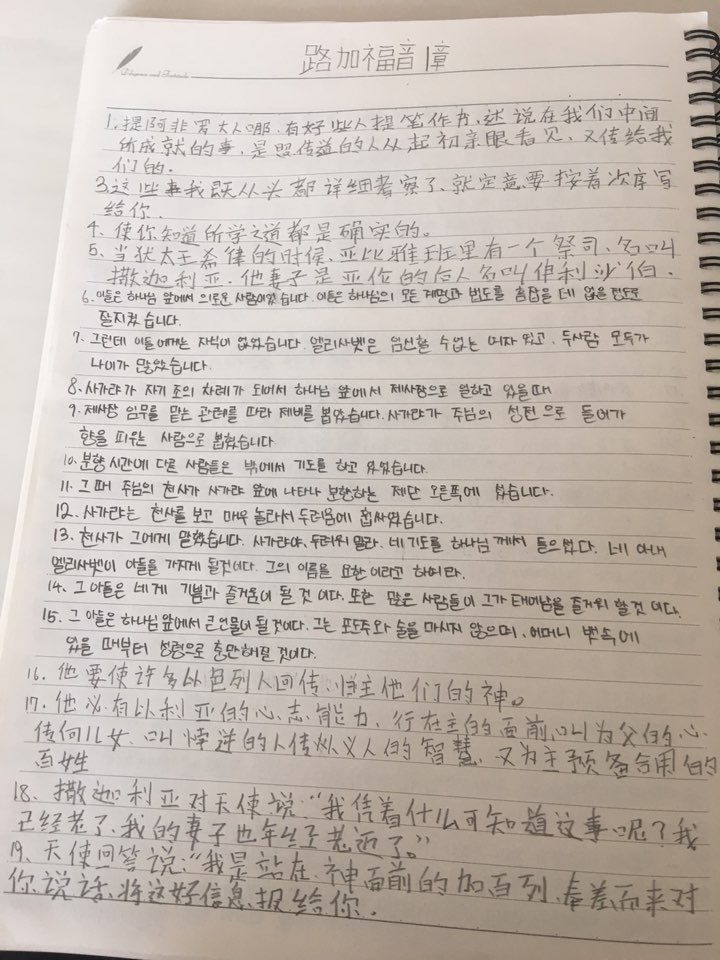 路加福音 1章
1. 提阿非罗大人哪、有好些人提笔作书,述说在我们中间
所成就的事,是照传道的人从起初亲眼看见、又传给我
们的.
3.这些事我既从头都详细考察了、就定意要按着次序写
给你.
4、使你知道所学之道都是确实的。
5、当犹太王希律的时候、亚比雅班里有一个祭司、名叫
撒迦利亚.他妻子是亚伦的后人名叫伊利沙伯.
6. 이들은 하나님 앞에서 의로운 사람이었습니다. 이들은 하나님의 모든 계명과 법도를 흠잡을 데 없을 정도로
잘지켰습니다.
7. 그런데 이들에게는 자식이 없었습니다. 엘리사벳은 임신할 수없는 여자였고, 두사람 모두가
나이가 많았습니다.
8. 사가랴가 자기 조의 차례가 되어서 하나님 앞에서 제사장으로 일하고 있을때
9. 제사장 임무를 맡는 관례를 따라 제비를 뽑았습니다. 사가랴가 주님의 성전으로 들어가
향을 피우는 사람으로 뽑혔습니다.
10. 분향 시간에 다른 사람들은 밖에서 기도를 하고 있었습니다.
11. 그 때 주님의 천사가 사가랴 앞에 나타나 분향하는 제단 오른쪽에 섰습니다.
12. 사가랴는 천사를 보고 매우 놀라서 두려움에 휩싸였습니다.
13. 천사가 그에게 말했습니다. 사가랴야, 두려워 말라. 네 기도를 하나님 께서 들으셨다. 네 아내
엘리사벳이 아들을 가지게 될것이다. 그의 이름을 요한 이라고 하여라.
14. 그 아들은 네게 기쁨과 즐거움이 될 것 이다. 또한 많은 사람들이 그가 태어남을 즐거워 할 것 이다.
15. 그 아들은 하나님 앞에서 큰인물이 될것이다. 그는 포도주와 술을 마시지 않으며, 어머니 뱃속에
있을 때부터 성령으로 충만해질 것이다.
16. 他要使许多以色列人回传、归主他们的神。
17. 他必有以利亚的心、志、能力、行在主的面前、叫为父的心、
传向儿女、叫悖逆的人传从义人的智慧、又为主预备合用的
百姓
18、撒迦利亚对天使说:“我凭着什么可知道这事呢?我
已经老了、我的妻子也年纪老迈了。”
19、天使回答说:“我是站在、神面前的加百列、奉差而来对
你说话、将这好信息报给你.